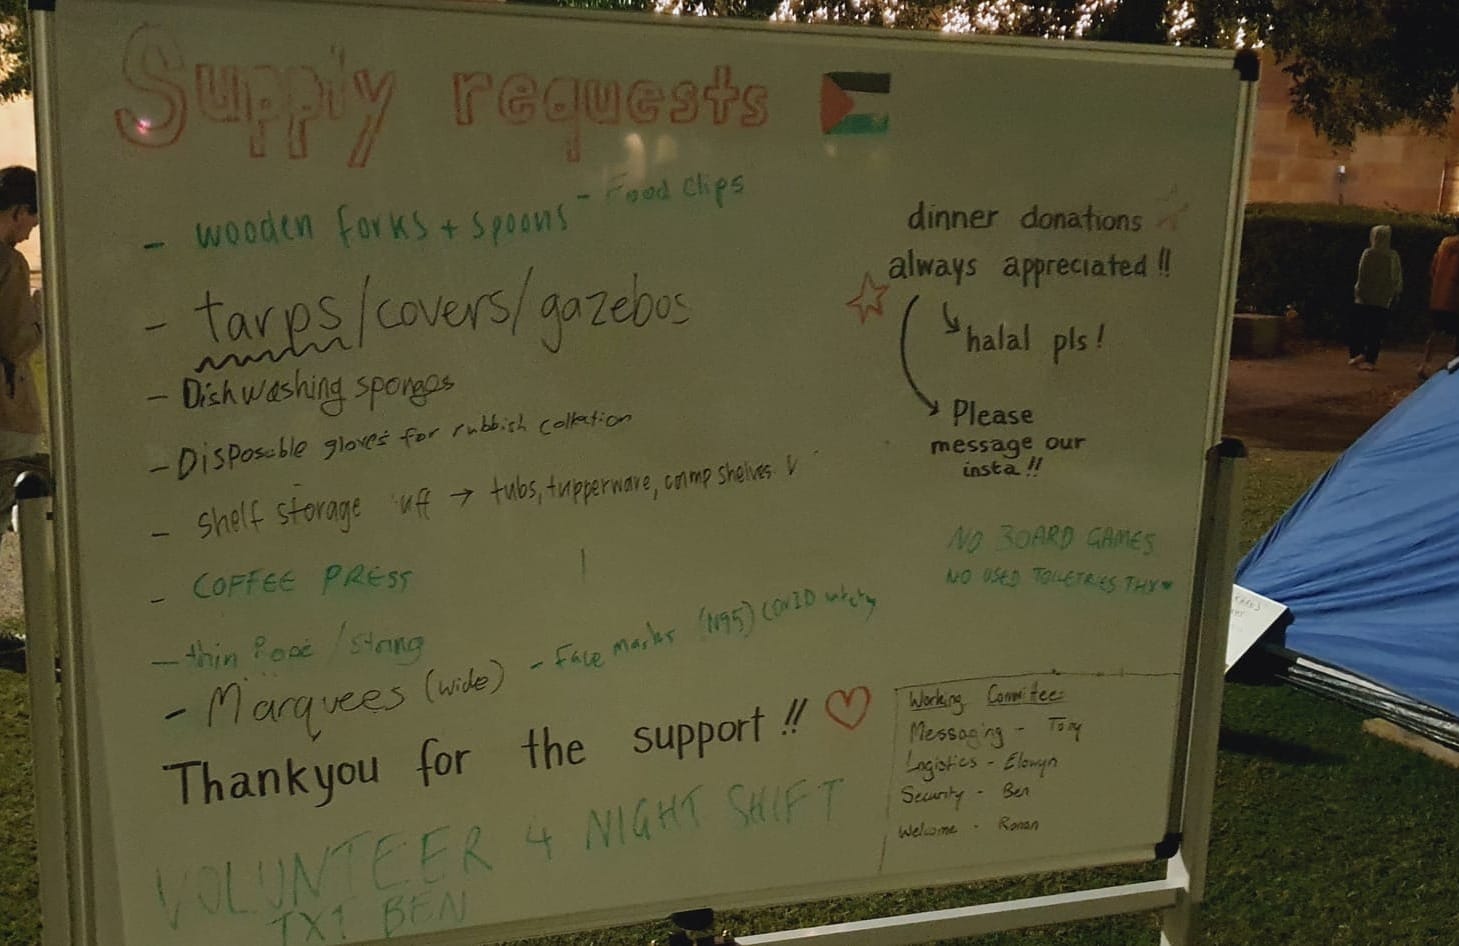 Supply requests
- wooden forks + spoons
- Food clips
- tarps/covers/gazebos
- Dishwashing sponges
- Disposable gloves for rubbish collection
- Shelf storage uff → tubs, tupperware, camp shelves
- COFFEE PRESS
- thin Rope / String
- Marquees (wide)
- Face masks (N95) COVID
Thankyou for the support !!
VOLUNTEER 4 NIGHT SHIFT
TXT BEN
dinner donations
always appreciated !!
halal pls !
Please
message our
insta !!
NO BOARD GAMES
NO USED TOILETRIES THX
Working Committee
Messaging - Tony
Logistics - Elowyn
Security - Ben
Welcome - Ronan